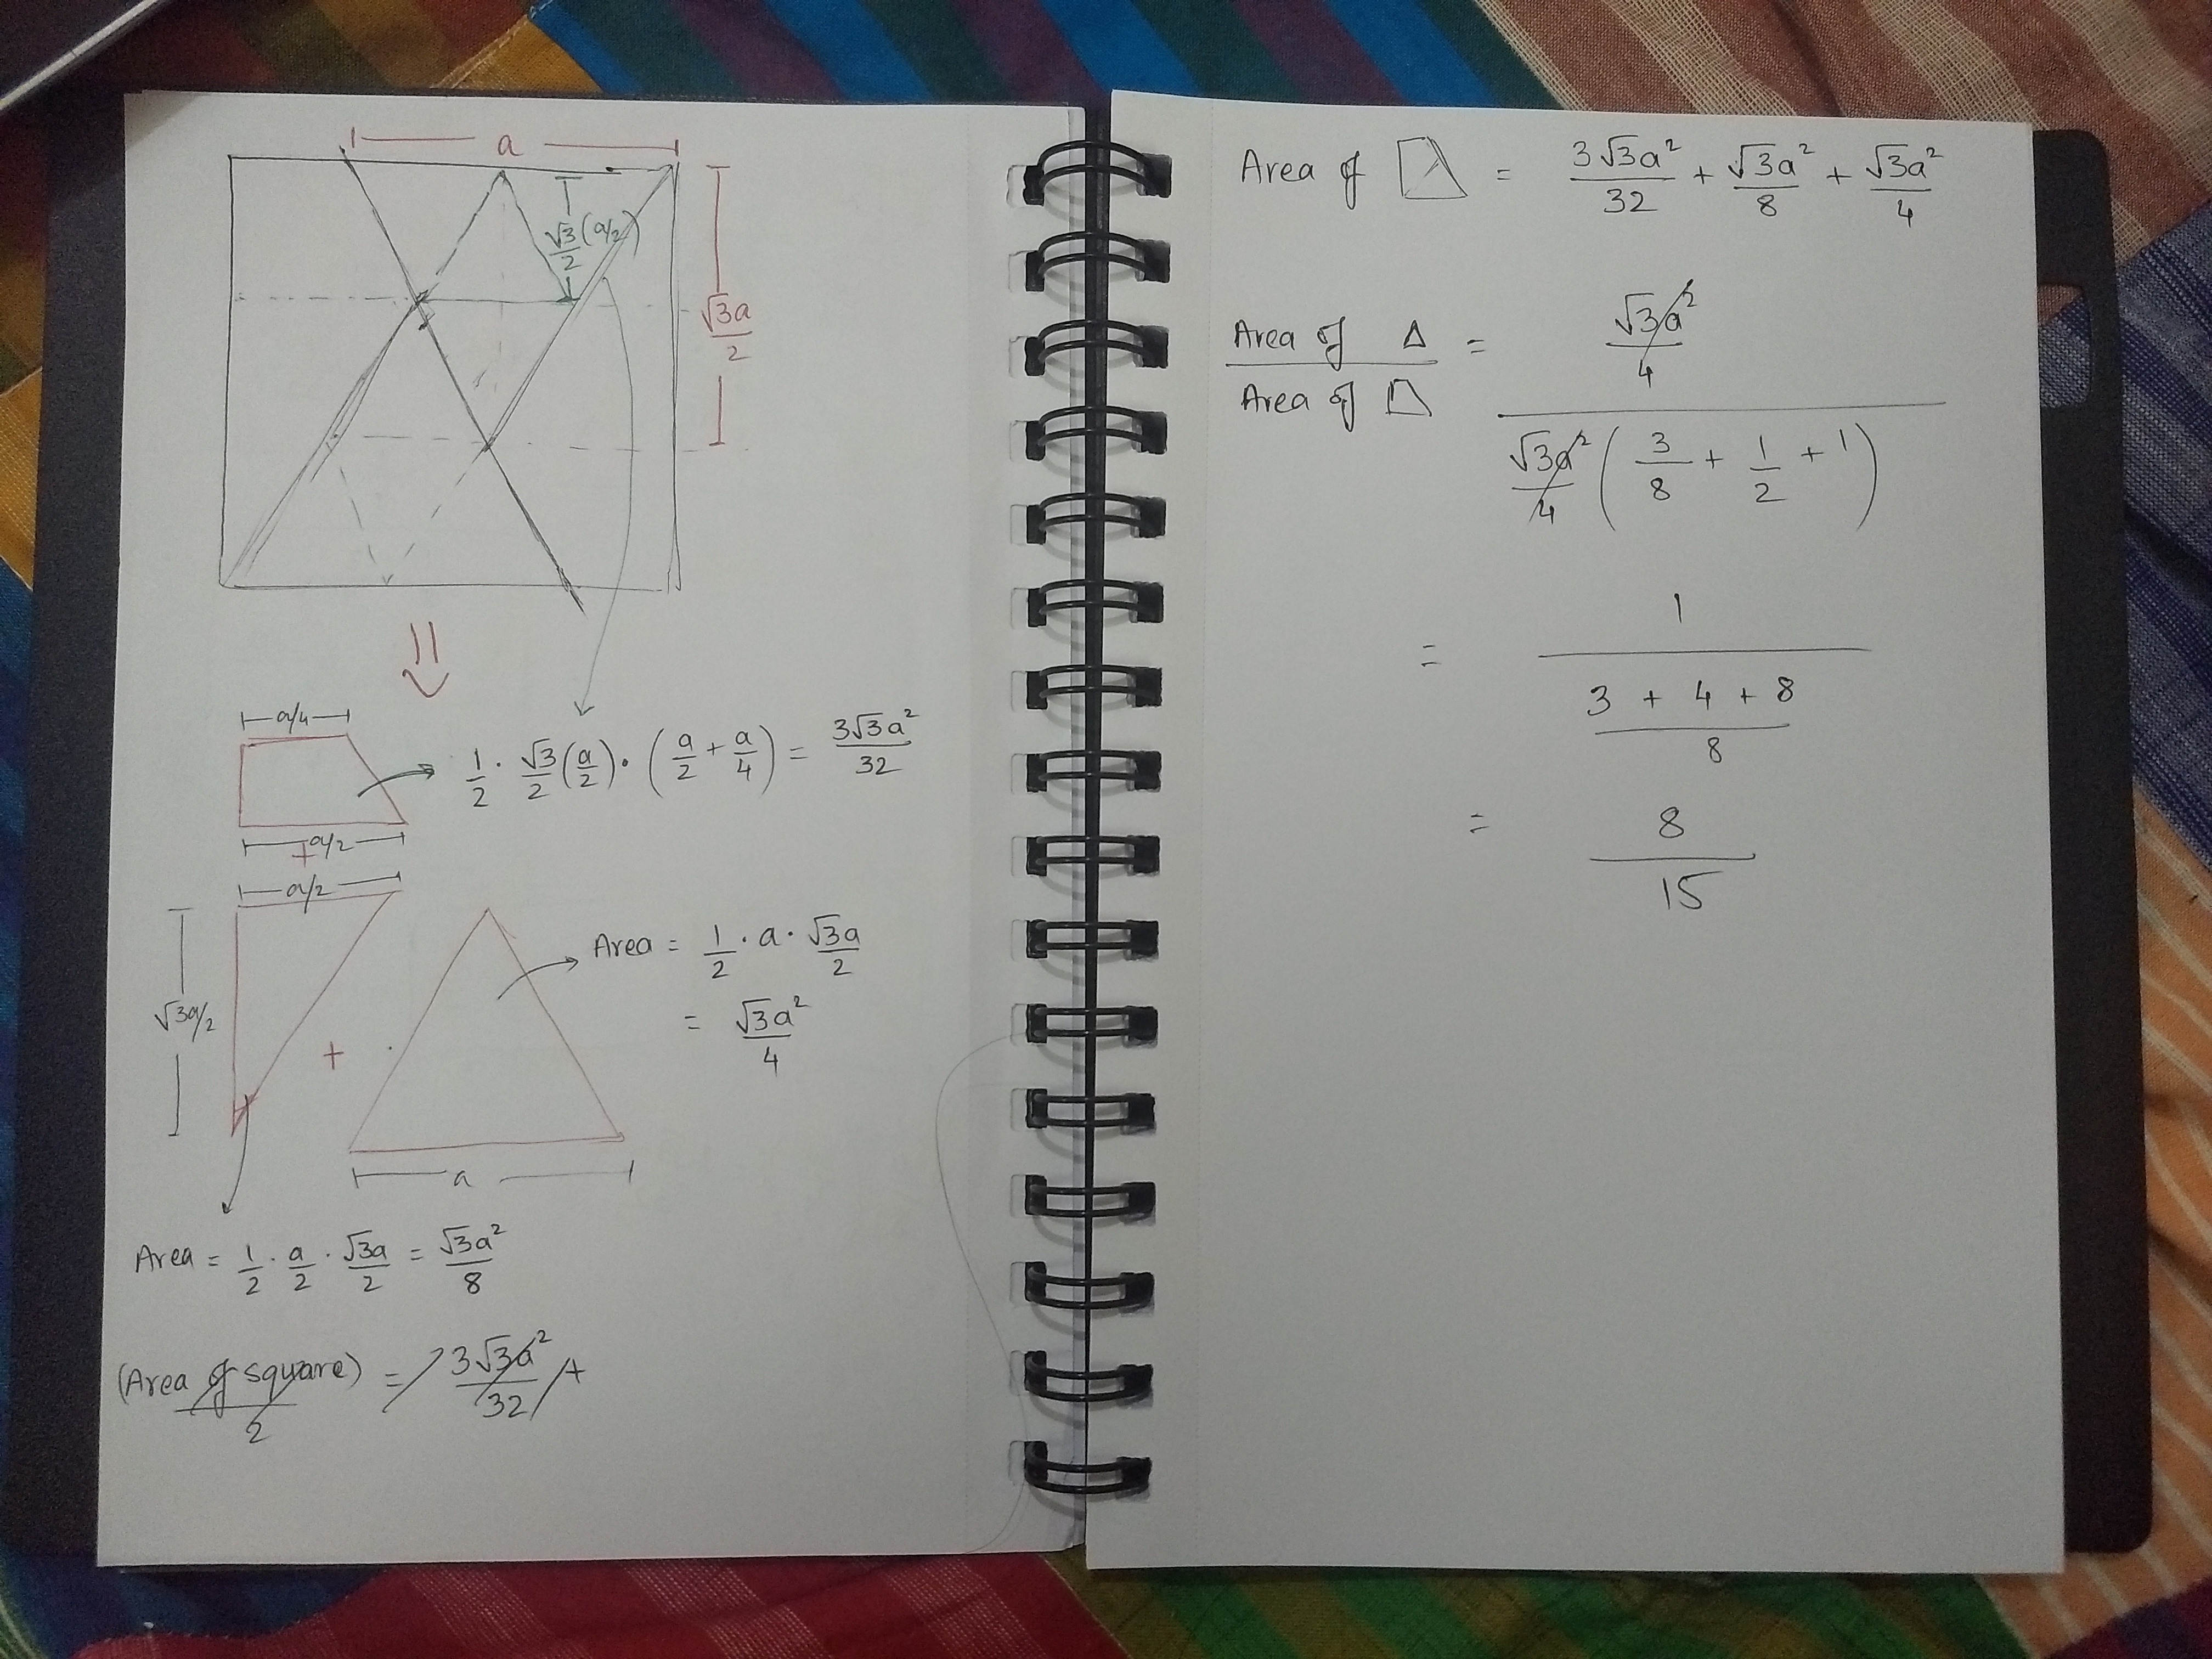 a
√3/2 (a/2)
√3a/2
a/4
1/2 · √3/2 (a/2) · (a/2 + a/4) = 3√3a²/32
a/2
+
a/2
√3a/2
+
Area = 1/2 · a · √3a/2
= √3a²/4
a
Area = 1/2 · a/2 · √3a/2 = √3a²/8
(Area of square)/2 = 3√3a²/32 +
Area of = 3√3a²/32 + √3a²/8 + √3a²/4
Area of Δ / Area of = √3a²/4 / √3a²/4 (3/8 + 1/2 + 1)
= 1 / (3 + 4 + 8)/8
= 8/15